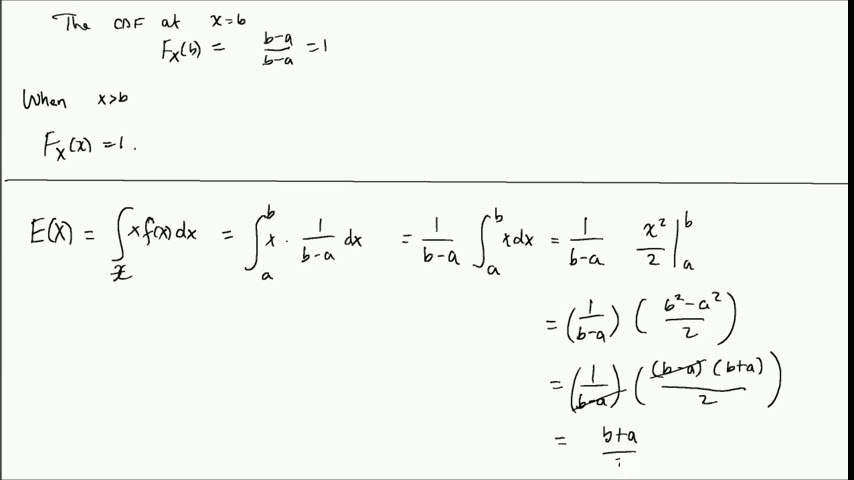 The CDF at x=b
F_X(b) = \frac{b-a}{b-a} = 1
When x>b
F_X(x) = 1.
E(X) = \int_{\mathcal{X}} x f(x) dx = \int_a^b x \cdot \frac{1}{b-a} dx = \frac{1}{b-a} \int_a^b x dx = \frac{1}{b-a} \frac{x^2}{2} |_a^b
= (\frac{1}{b-a}) (\frac{b^2-a^2}{2})
= (\frac{1}{b-a}) (\frac{(b-a)(b+a)}{2})
= \frac{b+a}{}